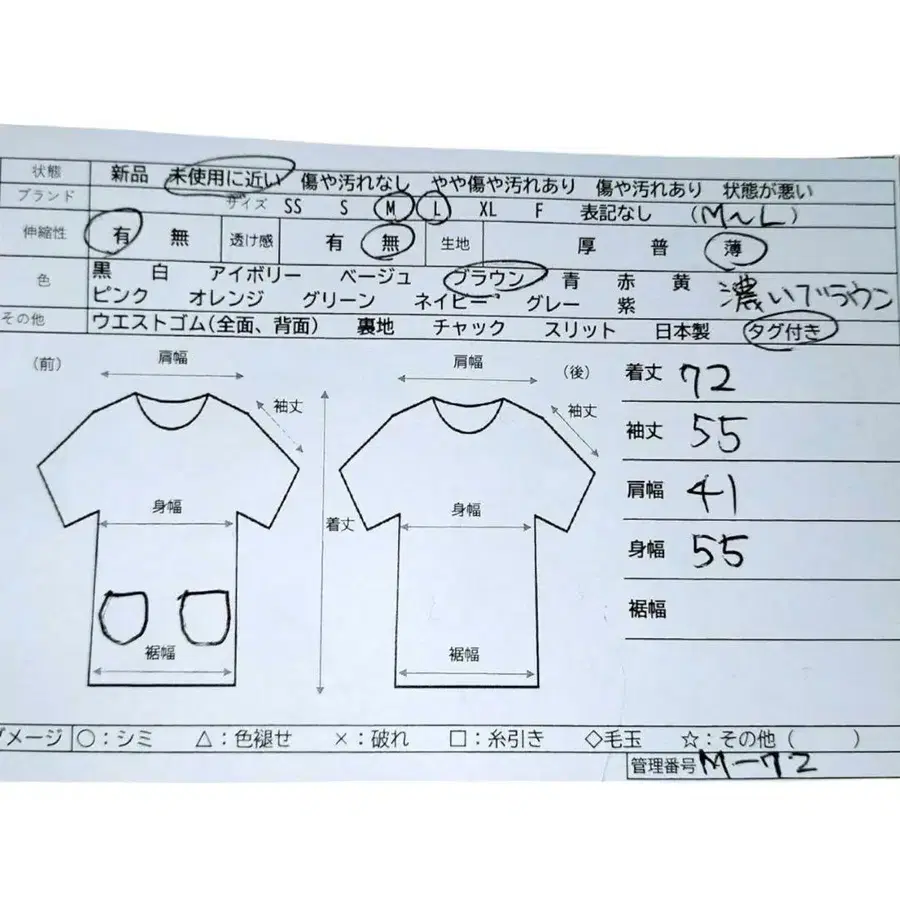 状態 新品 未使用に近い 傷や汚れなし やや傷や汚れあり 傷や汚れあり 状態が悪い
ブランド サイズ SS S M L XL F 表記なし (M~L)
伸縮性 有 無 透け感 有 無 生地 厚 普 薄
色 黒 白 アイボリー ベージュ ブラウン 青 赤 黄
ピンク オレンジ グリーン ネイビー グレー 紫 濃いブラウン
その他 ウエストゴム(全面、背面) 裏地 チャック スリット 日本製 タグ付き
(前) 肩幅 袖丈 肩幅 (後) 袖丈
着丈 72
袖丈 55
肩幅 41
身幅 着丈 身幅
身幅 55
裾幅
裾幅 裾幅
ダメージ ○:シミ △:色褪せ ×:破れ □:糸引き ◇毛玉 ☆:その他( )
管理番号 M-72